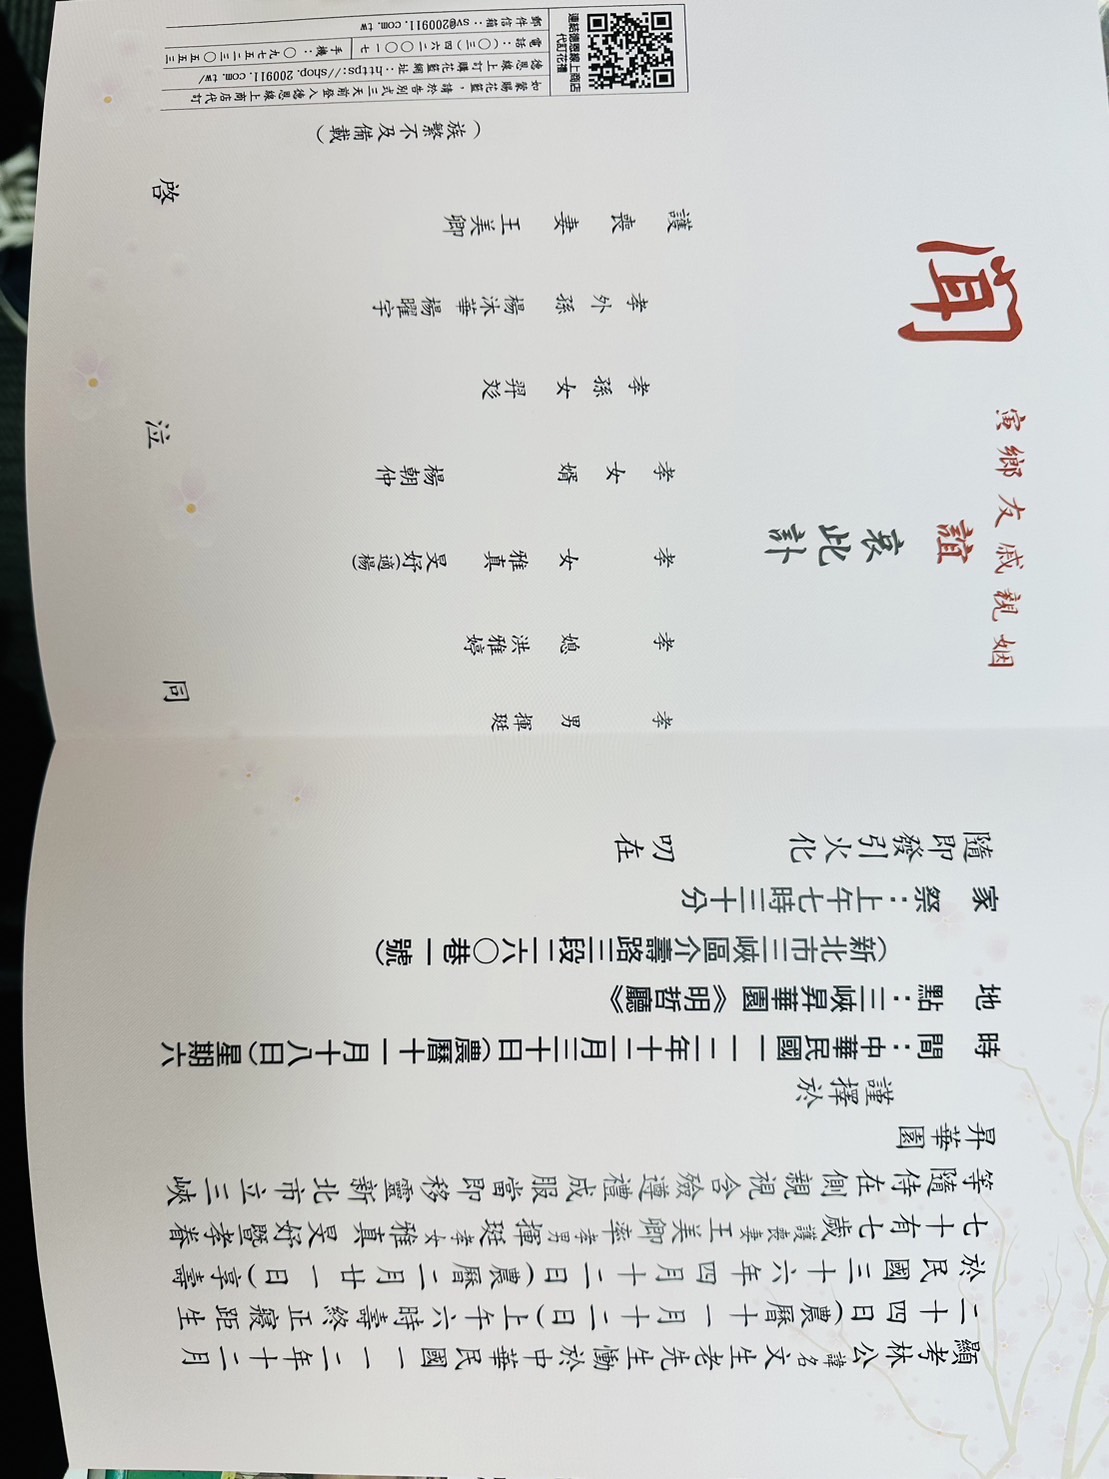 顯考林公諱名文生老先生慟於中華民國一一二年十二月
二十四日(農曆十一月十二日)上午六時壽終正寢距生
於民國三十六年四月十二日(農曆二月廿一日)享壽
七十有七歲護喪妻王美卿率孝男揮珽孝女雅真旻妤暨孝眷
等隨侍在側親視含殮遵禮成服當即移靈新北市立三峽
昇華園
謹擇於
時間：中華民國一一二年十二月三十日(農曆十一月十八日)星期六
地點：三峽昇華園《明哲廳》
(新北市三峽區介壽路三段一六〇巷一號)
家祭：上午七時三十分
隨即發引火化 叨在
姻親戚友鄉寅
誼
哀此訃
聞
孝男 揮珽
孝媳 洪雅婷
孝女 雅真 旻妤(適楊)
孝女婿 楊朝仲
孝孫女 羿彣
孝外孫 楊沐華 楊曜宇
護喪妻 王美卿
同泣啓
(族繁不及備載)
連結德恩線上商店
代訂花禮
如蒙賜花籃，請於告別式三天前登入德恩線上商店代訂
德恩線上購訂花籃網址：https://shop.200911.com.tw/
電話：(〇三)四六二〇〇一七 手機：〇九七五二三〇五五三
郵件信箱：sv@200911.com.tw